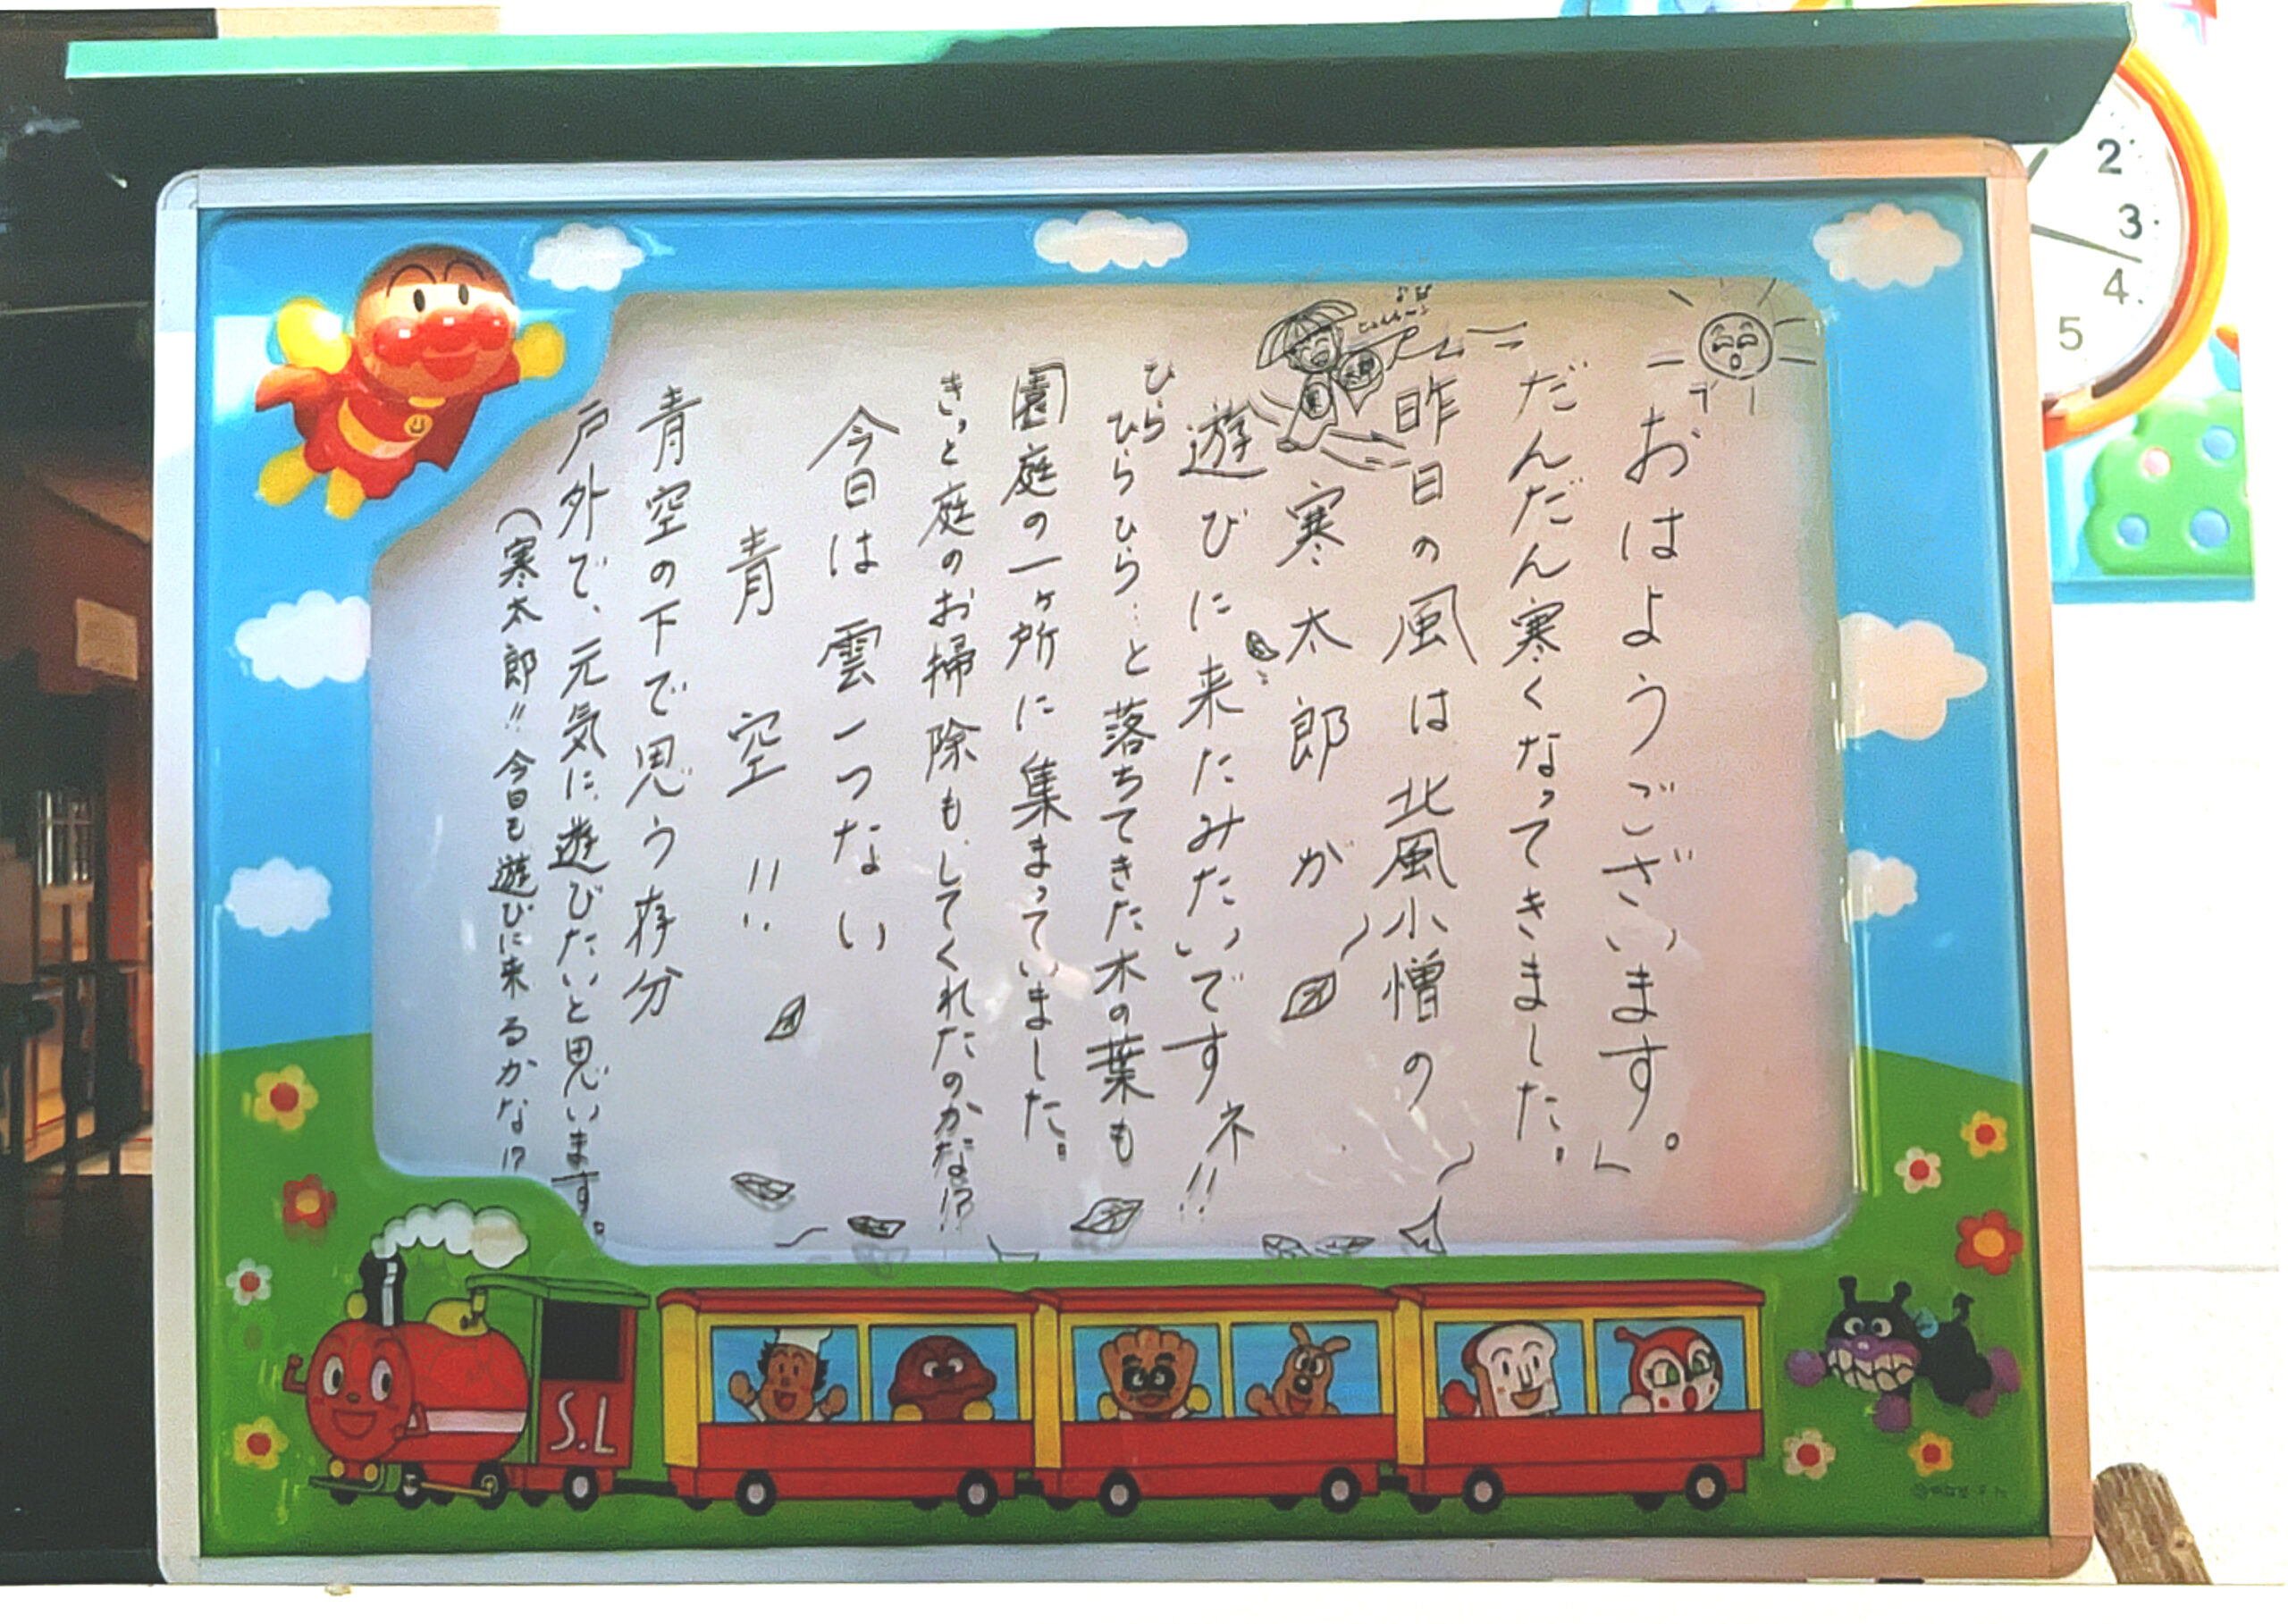 「おはようございます。」
だんだん寒くなってきました。
昨日の風は北風小僧の
寒太郎が
遊びに来たみたいですネ!!
ひらひらひらひら…と落ちてきた木の葉も
園庭の一ヶ所に集まっていました。
きっと庭のお掃除も、してくれたのかな!?
今日は雲一つない
青空!!
青空の下で思う存分
戸外で、元気に遊びたいと思います。
(寒太郎!!今日も遊びに来るかな!?
寒
太郎
S.L
2
3
4
5